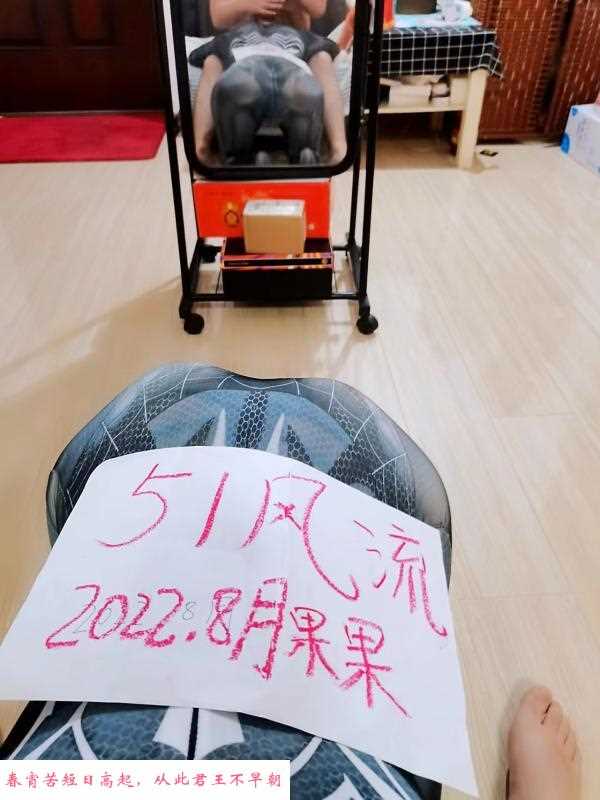 51风流
2022.8月果果
春宵苦短日高起，从此君王不早朝